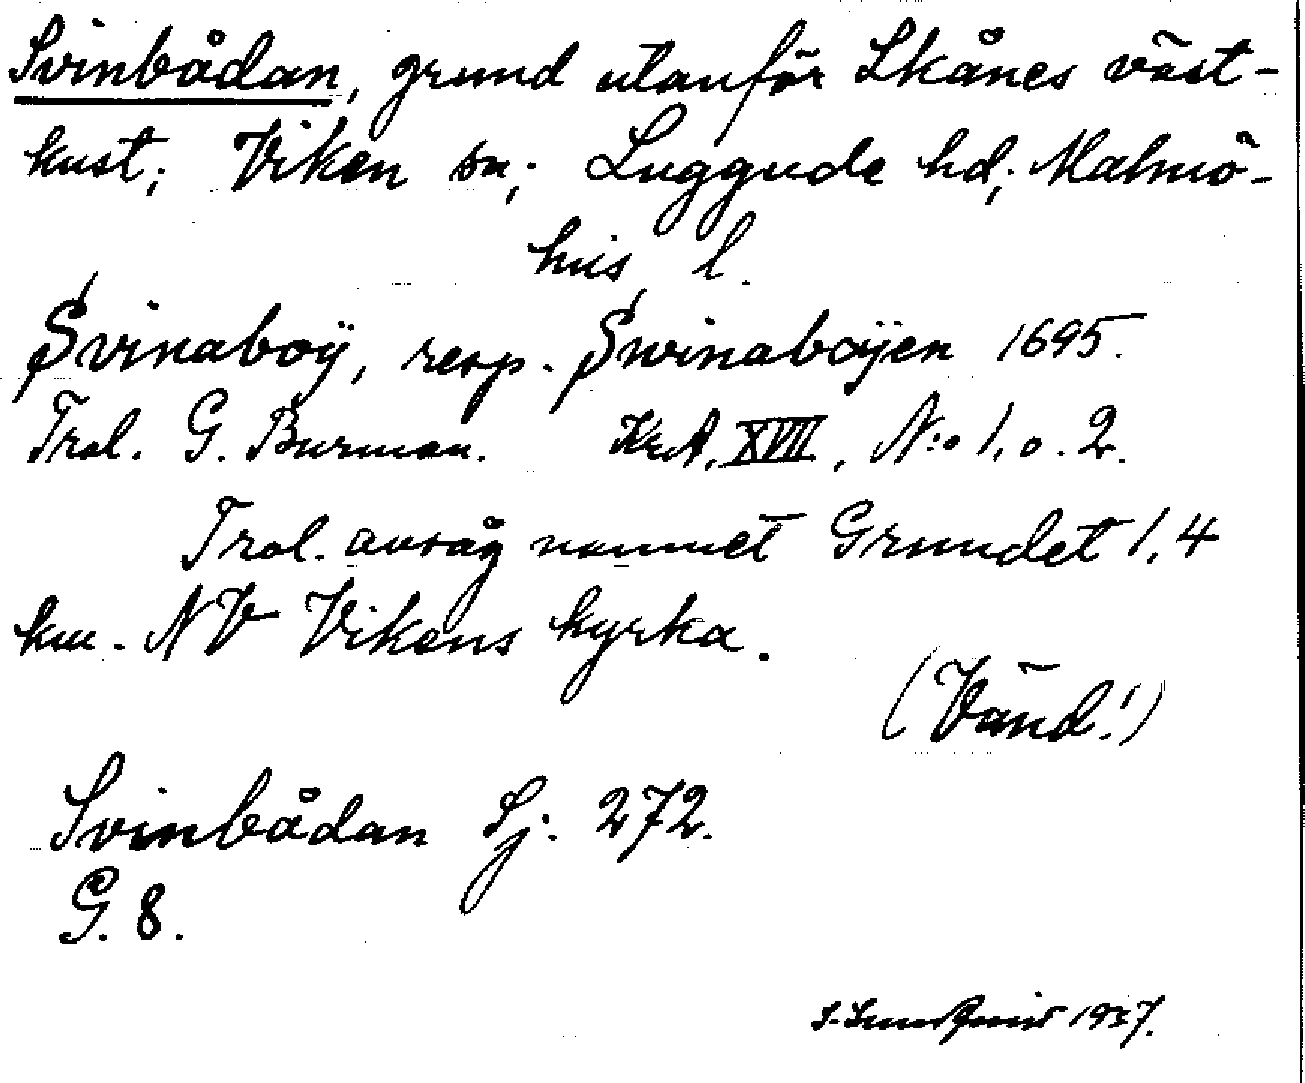 Svinbådan, grund utanför Skånes väst-
kust; Viken sn; Luggude hd; Malmö-
hus l.
Svinaboÿ, resp. Swinabojen 1695.
Trol. G. Burman. KrA, XVII, N:o 1, o. 2.
Trol. avsåg namnet Grundet 1,4
km. NV Vikens kyrka.
(Vänd!)
Svinbådan Sj. 272.
G. 8.
1937.